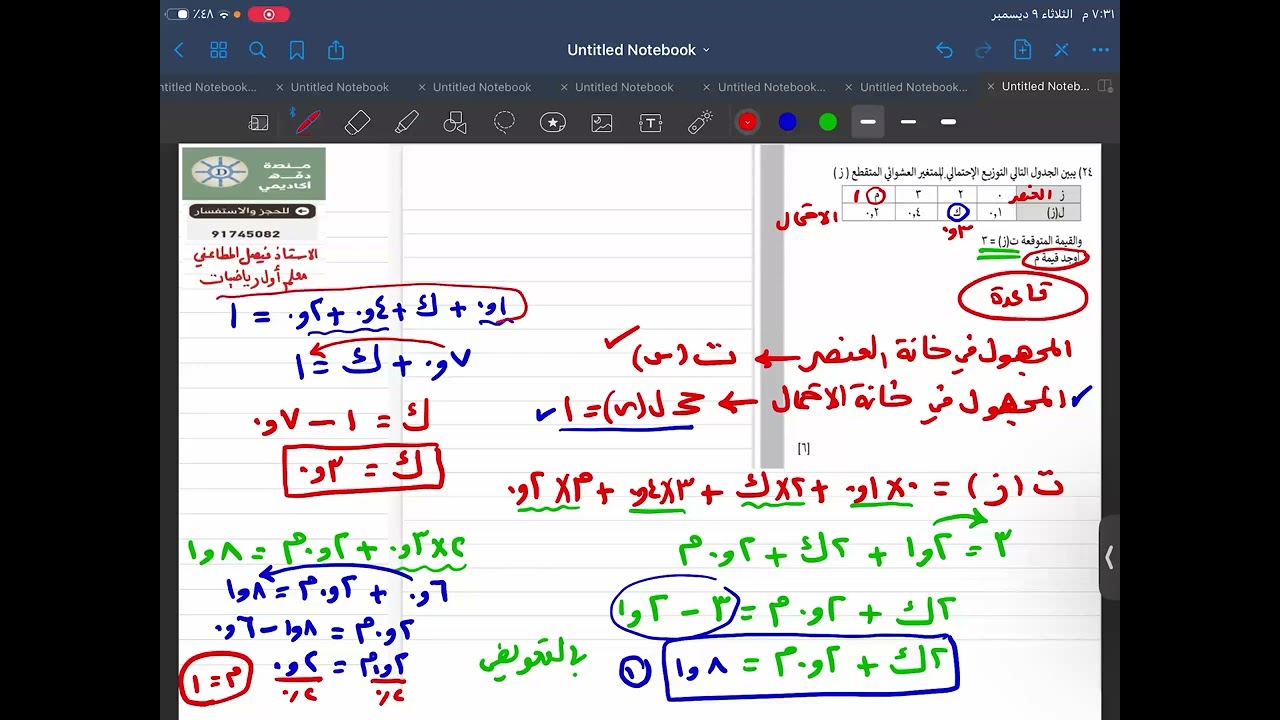 ٧:٣١ م الثلاثاء ٩ ديسمبر
٤٨٪
Untitled Notebook
ntitled Notebook...
Untitled Notebook
Untitled Notebook
Untitled Notebook
Untitled Notebook...
Untitled Notebook...
Untitled Noteb...
منصة
دقـــة
أكاديمي
للحجز والاستفسار
91745082
الاستاذ فيصل المطاعني
معلم أول رياضيات
٢٤) يبين الجدول التالي التوزيع الإحتمالي للمتغير العشوائي المتقطع ( ز )
ز العنصر ٠ ٢ ٣ م ١
ل(ز) ٠,١ ك ٠,٤ ٠,٢ الاحتمال
٠٫٣
والقيمة المتوقعة ت(ز) = ٣
أوجد قيمة م
قاعدة
المجهول في خانة العنصر ← ت(س)
المجهول في خانة الاحتمال ← مجـ ل(س) = ١
[٦]
٠٫١ + ك + ٠٫٤ + ٠٫٢ = ١
٠٫٧ + ك = ١
ك = ١ − ٠٫٧
ك = ٠٫٣
ت(ز) = ٠×٠٫١ + ٢×ك + ٣×٠٫٤ + م×٠٫٢
٣ = ١٫٢ + ٢ك + ٠٫٢م
٢ك + ٠٫٢م = ٣ − ١٫٢
٢ك + ٠٫٢م = ١٫٨
بالتعويض
٢×٠٫٣ + ٠٫٢م = ١٫٨
٠٫٦ + ٠٫٢م = ١٫٨
٠٫٢م = ١٫٨ − ٠٫٦